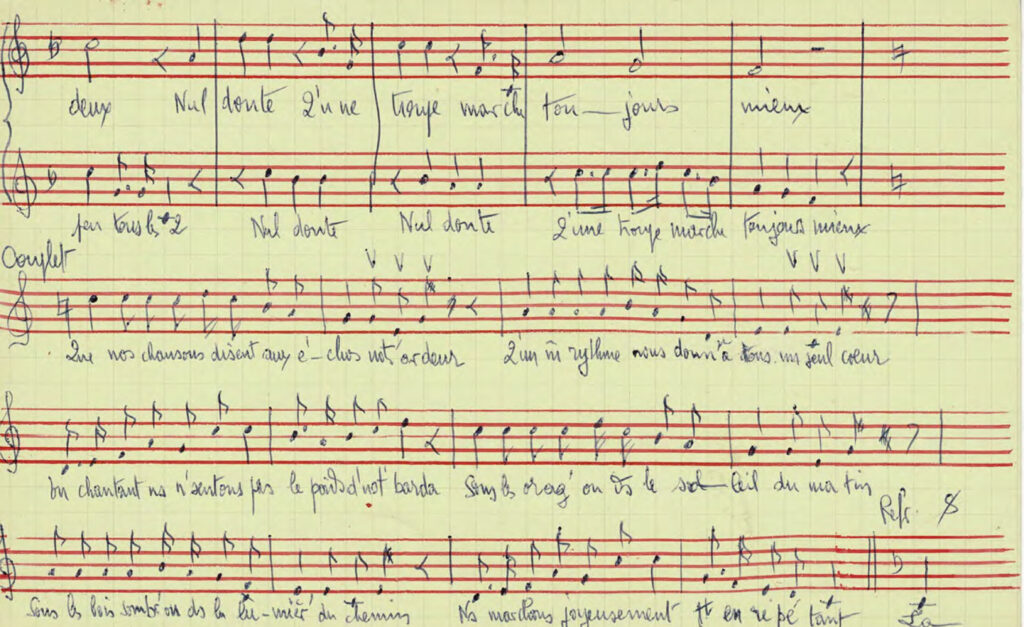 deux Nul doute Qu'une troupe marche tou—jours mieux
pas tous les 2 Nul doute Nul doute Qu'une troupe marche toujours mieux
Couplet
Que nos chansons disent aux é—chos not' ardeur Qu'un m̄ rythme nous donn' à tous un seul coeur
En chantant ns n'sentons pas le poids d'not' barda Sous les orag' ou ds le sol—leil du matin
Refr.
Sous les bois sombr' ou ds la lu—mièr' du chemin Ns marchons joyeusement tt en répétant La